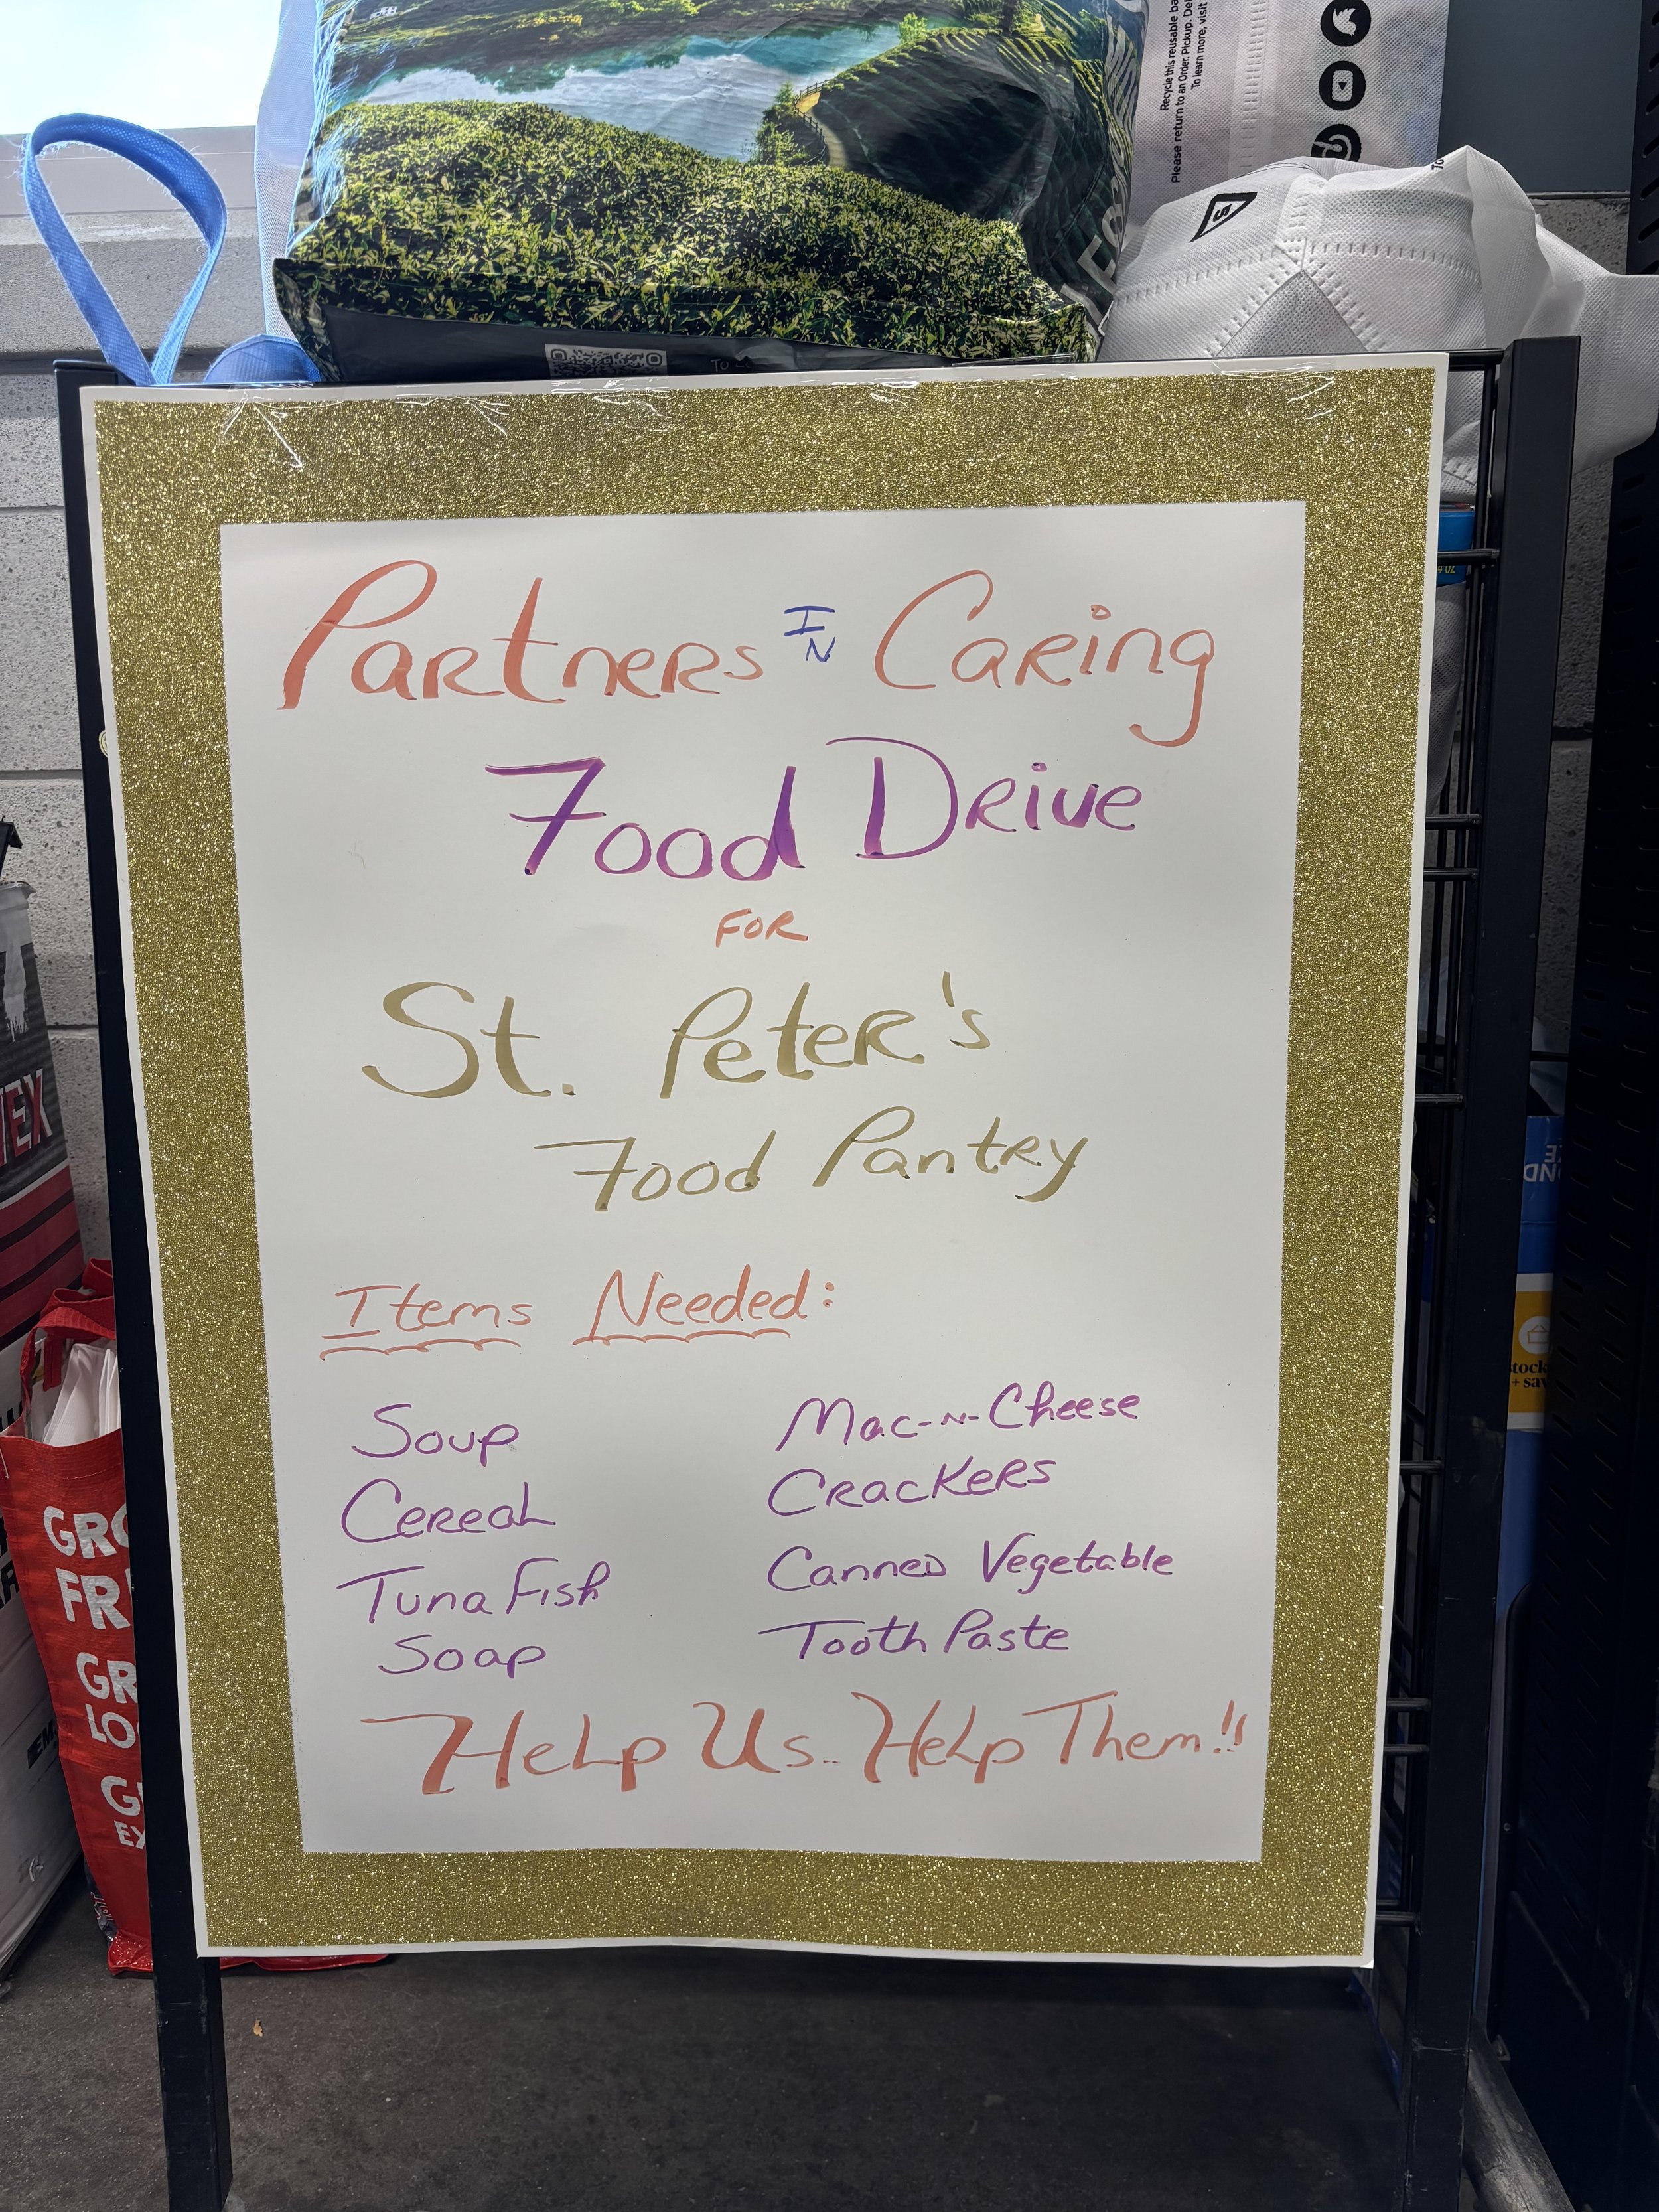 Recycle this reusable ba
Please return to an Order Pickup, Del
To learn more, visit
5
To
Partners IN Caring
Food Drive
FOR
St. Peter's
Food Pantry
Items Needed:
Soup
Cereal
Tuna Fish
Soap
Mac-N-Cheese
Crackers
Canned Vegetable
Tooth Paste
Help Us.. Help Them!!
EX
GRO
FRE
GR
LO
G
EX
OZ
stock
+ sav